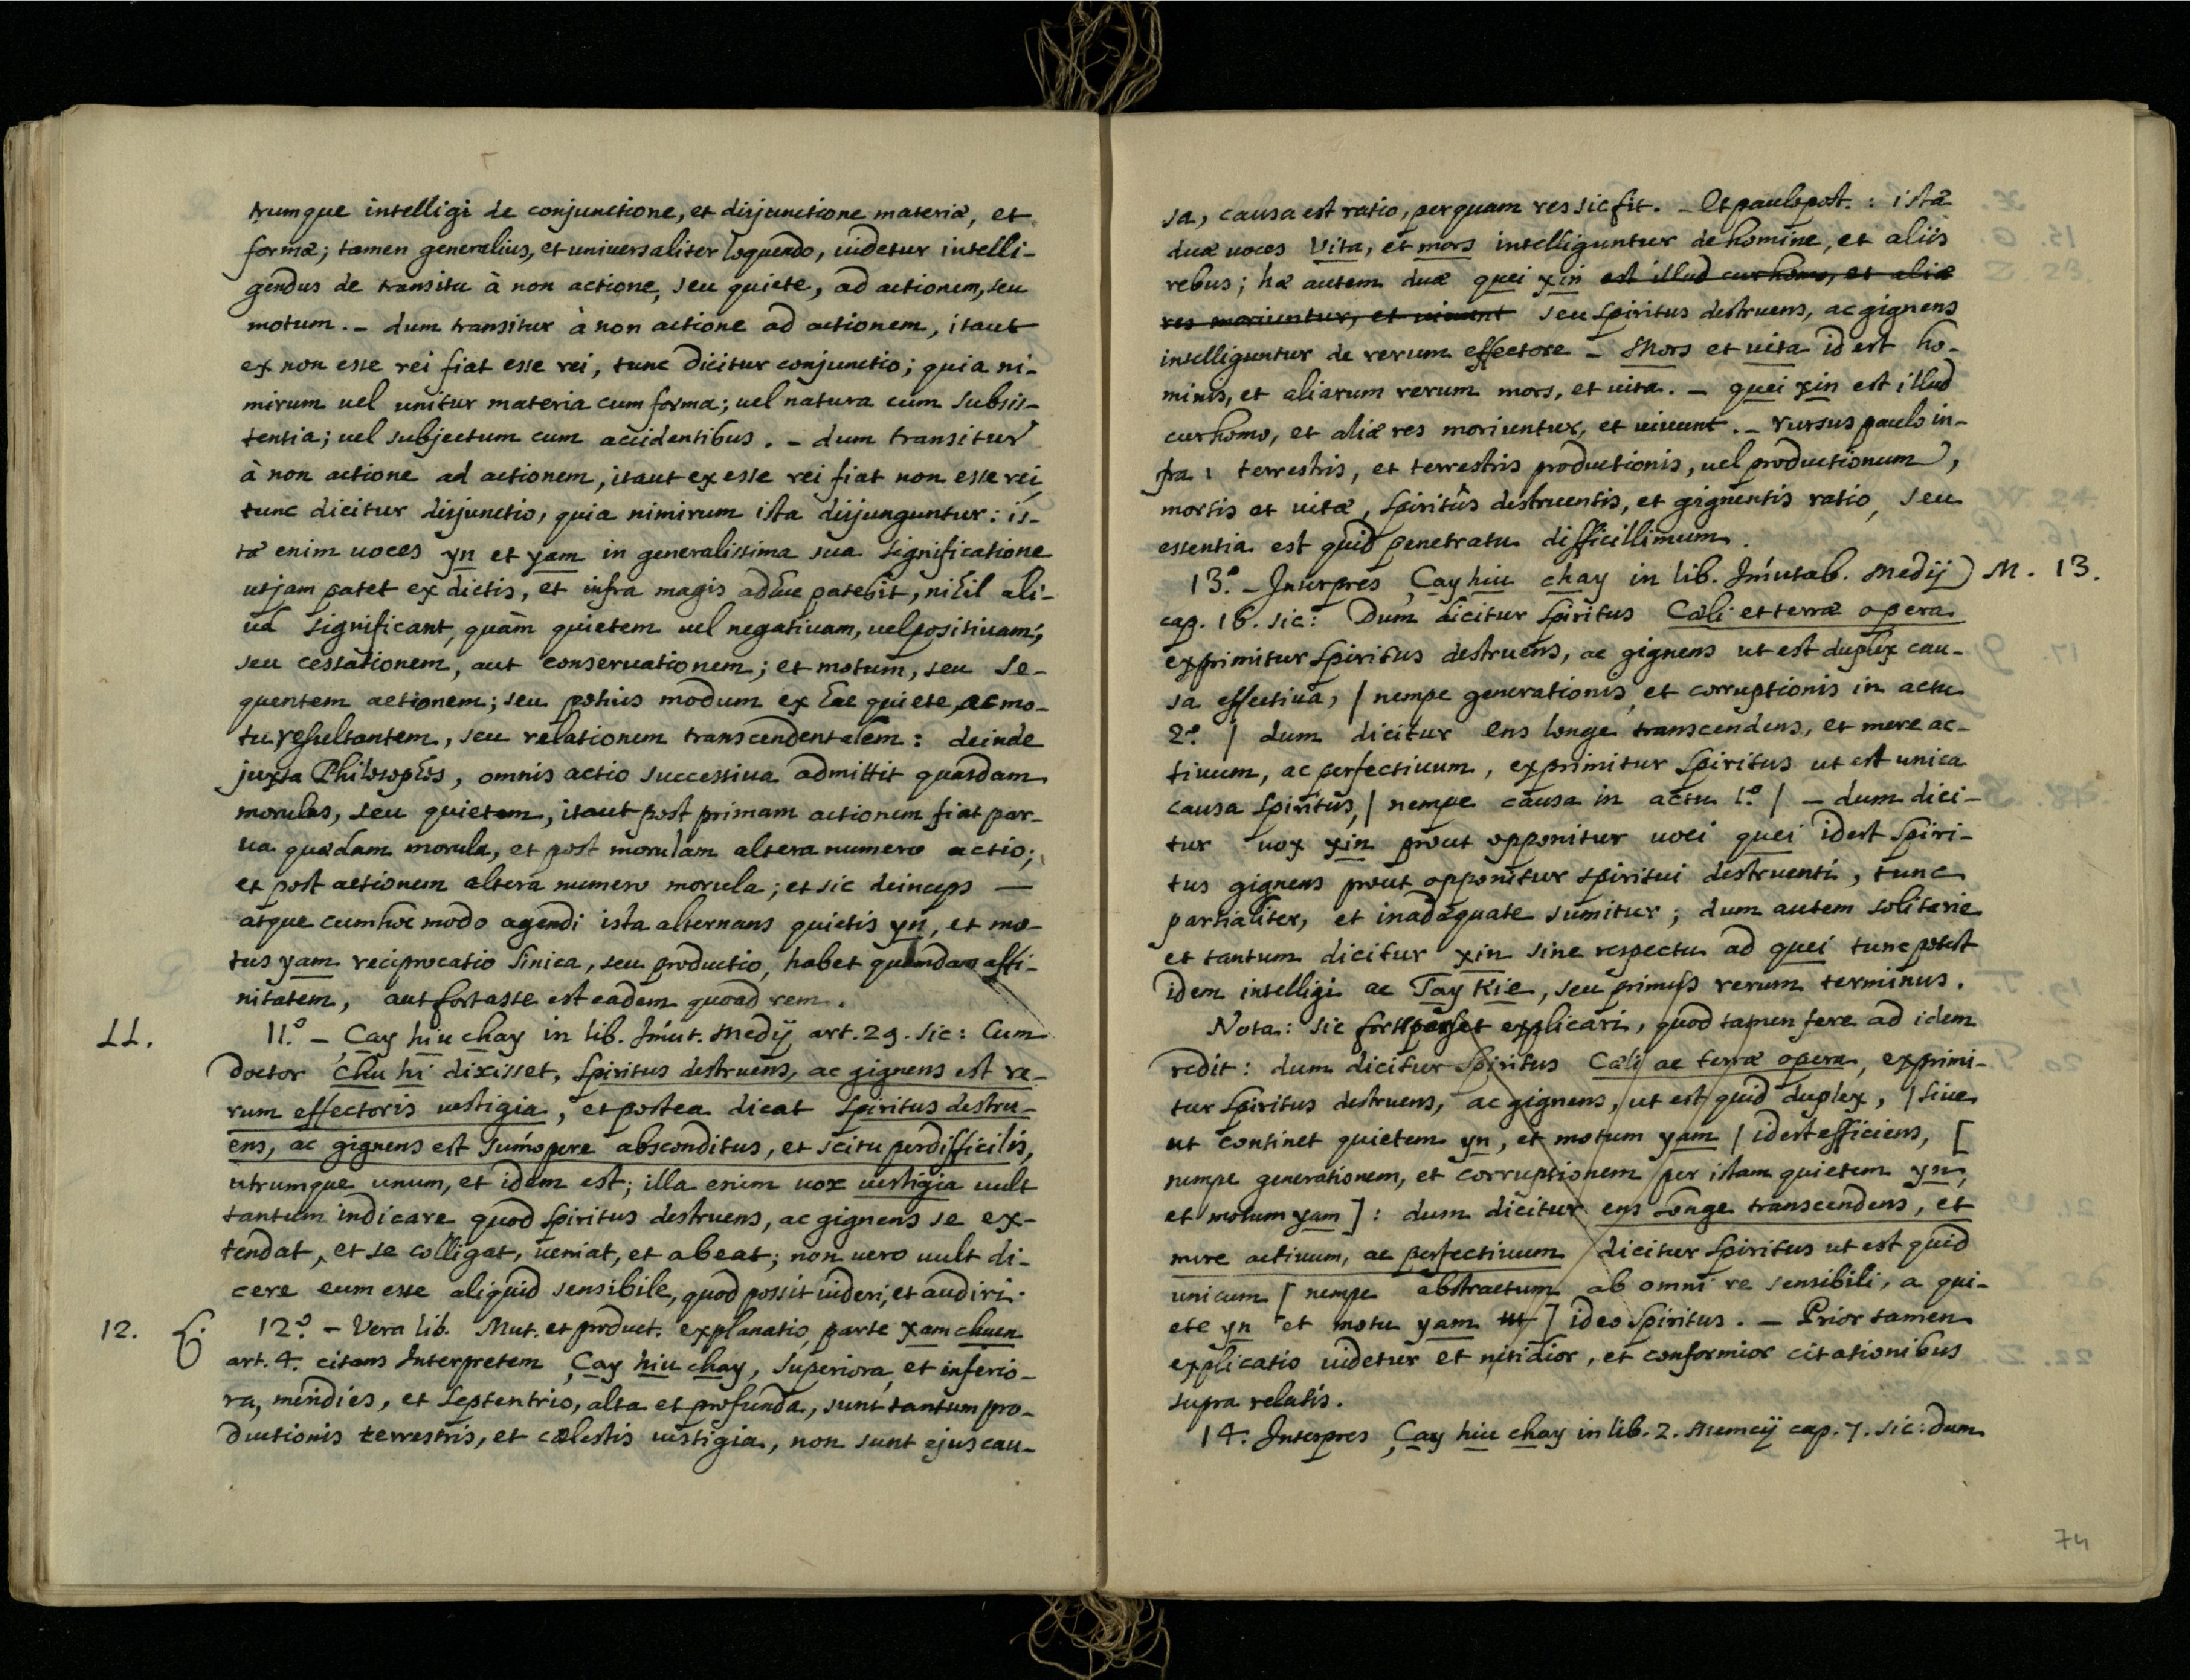 trumque intelligi de conjunctione, et disjunctione materiæ, et
formæ; tamen generalius, et universaliter loquendo, videtur intelli-
gendus de transitu à non actione, seu quiete, ad actionem, seu
motum. - dum transitur à non actione ad actionem, itaut
ex non esse rei fiat esse rei, tunc dicitur conjunctio; quia ni-
mirum vel unitur materia cum forma; vel natura cum subsis-
tentia; vel subjectum cum accidentibus. - dum transitur
à non actione ad actionem, itaut ex esse rei fiat non esse rei,
tunc dicitur disjunctio, quia nimirum ista disjunguntur: is-
tæ enim voces yn et yam in generalissima sua significatione
ut jam patet ex dictis, et infra magis adhuc patebit, nihil ali-
ud significant, quàm quietem vel negativam, vel positivam,
seu cessationem, aut conservationem; et motum, seu se-
quentem actionem; seu potius modum ex hac quiete, ac mo-
tu resultantem, seu relationem transcendentalem: deinde
juxta Philosophos, omnis actio successiva admittit quasdam
morulas, seu quietem, itaut post primam actionem fiat par-
va quædam morula, et post morulam altera numero actio;
et post actionem altera numero morula; et sic deinceps —
atque cum hoc modo agendi ista alternans quietis yn, et mo-
tus yam reciprocatio Sinica, seu productio, habet quamdam affi-
nitatem, aut fortasse est eadem quoad rem.
11. 11.º - Çay hiu chay in lib. Imut. Medij art. 29. sic: Cum
doctor chu hi dixisset, spiritus destruens, ac gignens est re-
rum effectoris vestigia, et postea dicat spiritus destru-
ens, ac gignens est sumopere absconditus, et scitu perdifficilis,
utrumque unum, et idem est; illa enim vox vestigia vult
tantum indicare quod spiritus destruens, ac gignens se ex-
tendat, et se colligat, veniat, et abeat; non vero vult di-
cere eum esse aliquid sensibile, quod possit videri, et audiri.
12. 12.º - Vera lib. Mut. et product. explanatio parte xam chuen
art. 4. citans Interpretem Çay hiu chay, superiora, et inferio-
ra, meridies, et septentrio, alta et profunda, sunt tantum pro-
ductionis terrestris, et cælestis vestigia, non sunt ejus cau-
sa, causa est ratio, per quam res sic fit. - Et paulo post.: istæ
duæ voces Vita, et mors intelliguntur de homine, et aliis
rebus; hæ autem duæ quei xin est illud cur homo, et aliæ
res moriuntur, et vivunt seu spiritus destruens, ac gignens
intelliguntur de rerum effectore - Mors et vita id est ho-
minis, et aliarum rerum mors, et vita. - quei xin est illud
cur homo, et aliæ res moriuntur, et vivunt. - rursus paulo in-
fra: terrestris, et terrestris productionis, vel productionum,
mortis et vitæ, spiritûs destruentis, et gignentis ratio, seu
essentia est quid penetratu difficillimum.
13.º - Interpres Çay hiu chay in lib. Imutab. Medij) M. 13.
cap. 16. sic: Dum dicitur spiritus Cæli et terræ opera
exprimitur spiritus destruens, ac gignens ut est duplex cau-
sa effectiva, / nempe generationis, et corruptionis in actu
2.º / dum dicitur ens longe transcendens, et mere ac-
tivum, ac perfectivum, exprimitur spiritus ut est unica
causa spiritus, / nempe causa in actu 1.º / - dum dici-
tur vox xin prout opponitur voci quei id est spiri-
tus gignens prout opponitur spiritui destruenti, tunc
partialiter, et inadæquate sumitur; dum autem solitarie
et tantum dicitur xin sine respectu ad quei tunc potest
idem intelligi ac Tay Kie, seu primus rerum terminus.
Nota: sic explicari, quod tamen fere ad idem
redit: dum dicitur spiritus Cæli ac terræ opera, exprimi-
tur spiritus destruens, ac gignens, ut est quid duplex, / sive
ut continet quietem yn, et motum yam / id est efficiens, [
nempe generationem, et corruptionem per istam quietem yn,
et motum yam]: dum dicitur ens longe transcendens, et
mere activum, ac perfectivum dicitur spiritus ut est quid
unicum [ nempe abstractum ab omni re sensibili, a qui-
ete yn et motu yam ] ideo spiritus. - Prior tamen
explicatio videtur et nitidior, et conformior citationibus
supra relatis.
14. Interpres Çay hiu chay in lib. 2. Memcij cap. 7. sic: dum
74